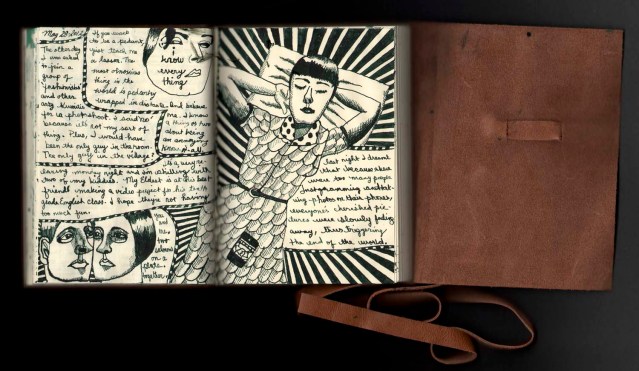 May 28 2012
The other day
I was asked
to join a
group of
fashionistas
and other
arty Kuwaitis
for a photoshoot. I said no
because it's not my sort of
thing. Plus, I would have
been the only guy in the room.
The only guy in the village!
If you want
to be a pedant,
just teach me
a lesson. The
most obnoxious
thing in the
world is pedantry
wrapped in disdain. And believe
me. I know
a thing or two
about being
an annoying
know-it-all.
i
know
every
thing
It's a very
evening money night and I'm chilling with
two of my buddies. My Eldest is at his best
friend making a video project for his tenth
grade English class. I hope they're not having
too much fun.
you
and
me,
two
on a
plate.
together.
last night I dreamt
that because there
were too many people
Instagramming and
photos on their phones,
everyone's cherished pic-
tures were slowly fading
away, thus triggering
the end of the world.